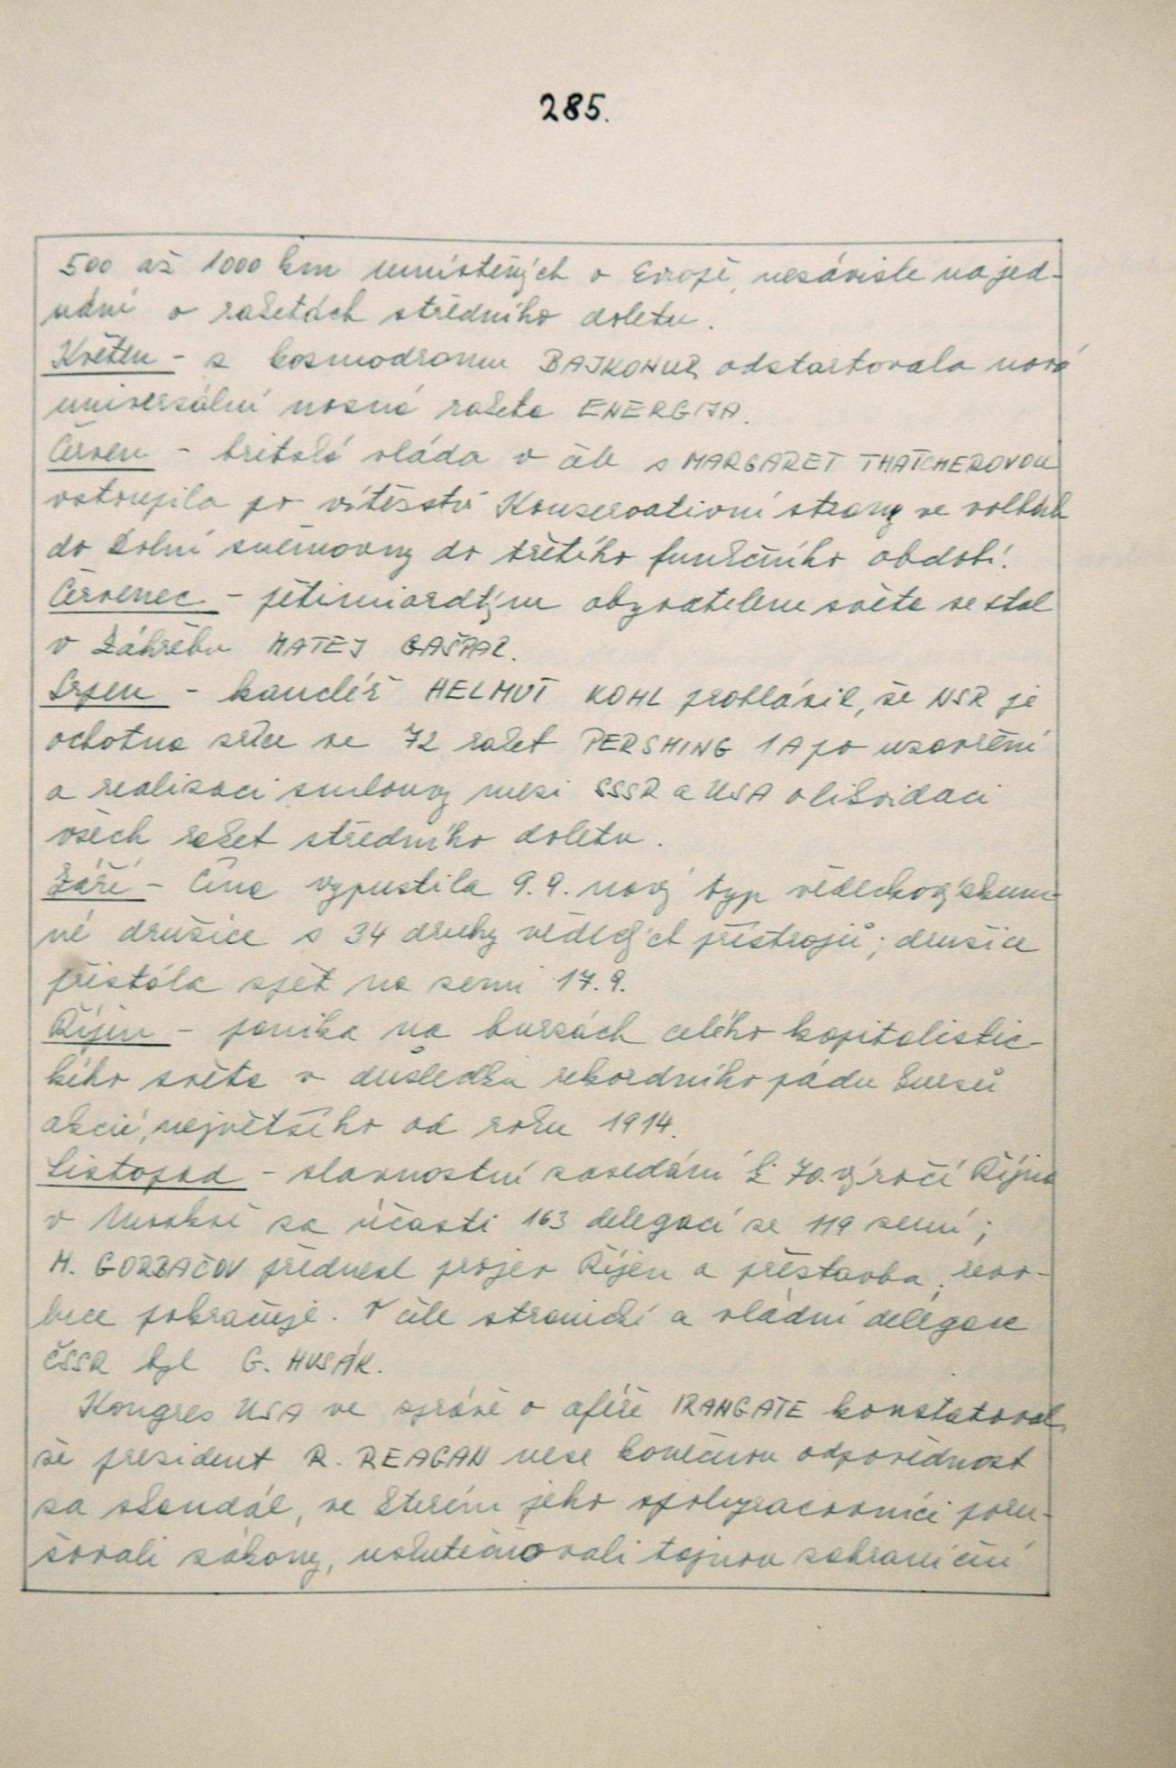 285.
500 až 1000 km umístěných v Evropě, nezávisle na jed-
nání o raketách středního doletu.
Květen - z kosmodromu BAJKONUR odstartovala nová
universální nosná raketa ENERGIJA.
Červen - britská vláda v čele s MARGARET THATCHEROVOU
vstoupila po vítězství Konservativní strany ve volbách
do Dolní sněmovny do třetího funkčního období.
Červenec - pětimiardtým obyvatelem světa se stal
v Záhřebu MATEJ GAŠPAR.
Srpen - kancléř HELMUT KOHL prohlásil, že NSR je
ochotna zříci se 72 raket PERSHING 1A po uzavření
a realizaci smlouvy mezi SSSR a USA o likvidaci
všech raket středního doletu.
Září - Čína vypustila 9.9. nový typ vědeckovýzkum-
né družice s 34 druhy vědeckých přístrojů; družice
přistála zpět na zemi 17.9.
Říjen - panika na burzách celého kapitalistic-
kého světa v důsledku rekordního pádu kursů
akcií, největšího od roku 1914.
Listopad - slavnostní zasedání k 70. výročí Října
v Moskvě za účasti 163 delegací ze 119 zemí;
M. GORBAČOV přednesl projev Říjen a přestavba, revo-
luce pokračuje. V čele stranické a vládní delegace
ČSSR byl G. HUSÁK.
Kongres USA ve zprávě o aféře IRANGATE konstatoval,
že president R. REAGAN nese konečnou odpovědnost
za skandál, ve kterém jeho spolupracovníci poru-
šovali zákony, uskutečňovali tajnou zahraniční